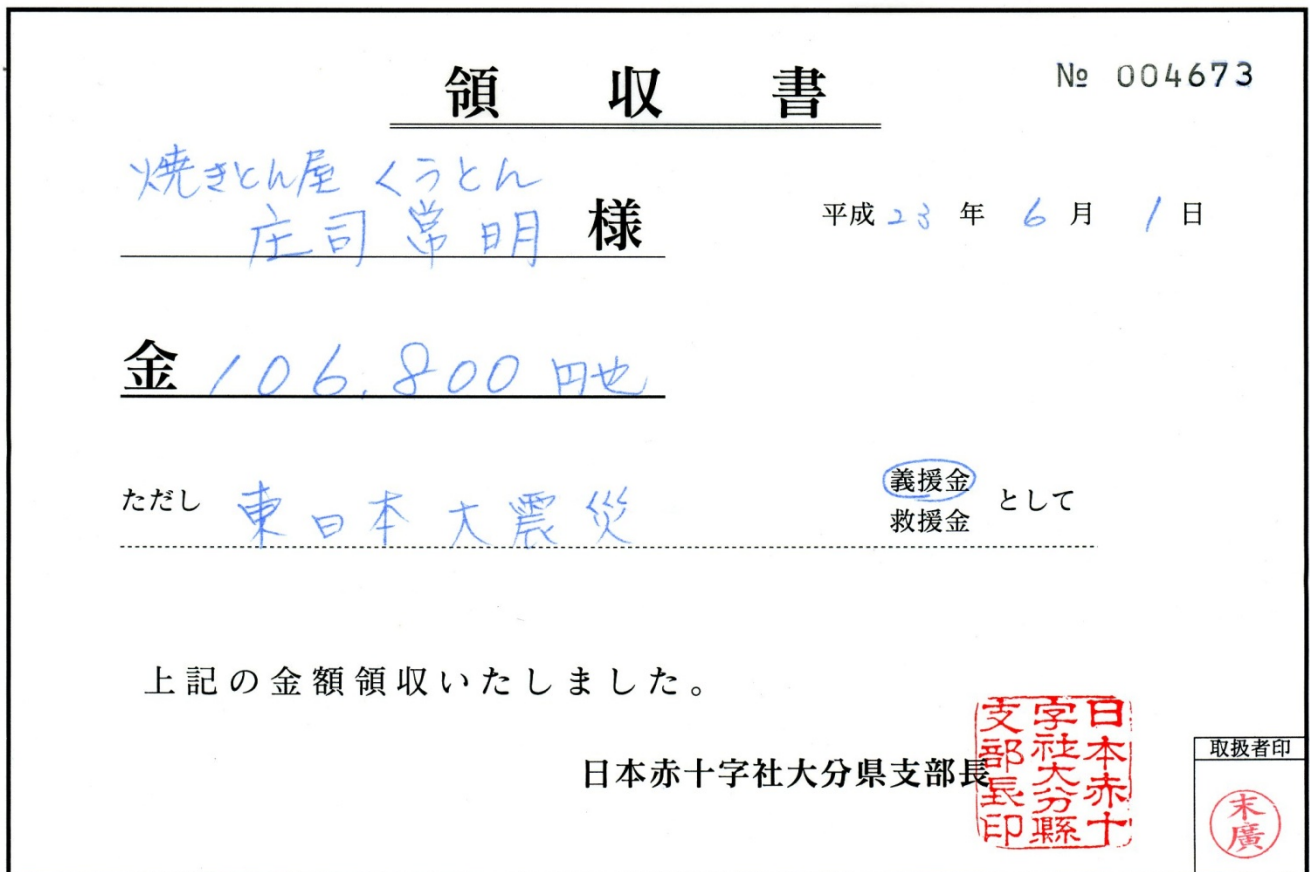 領収書
№ 004673
焼きとん屋 くうとん
庄司常明 様
平成23年6月1日
金 106,800円也
ただし 東日本大震災 義援金 として
救援金
上記の金額領収いたしました。
日本赤十字社大分県支部長
日本赤十
字社大分縣
支部長印
取扱者印
末廣